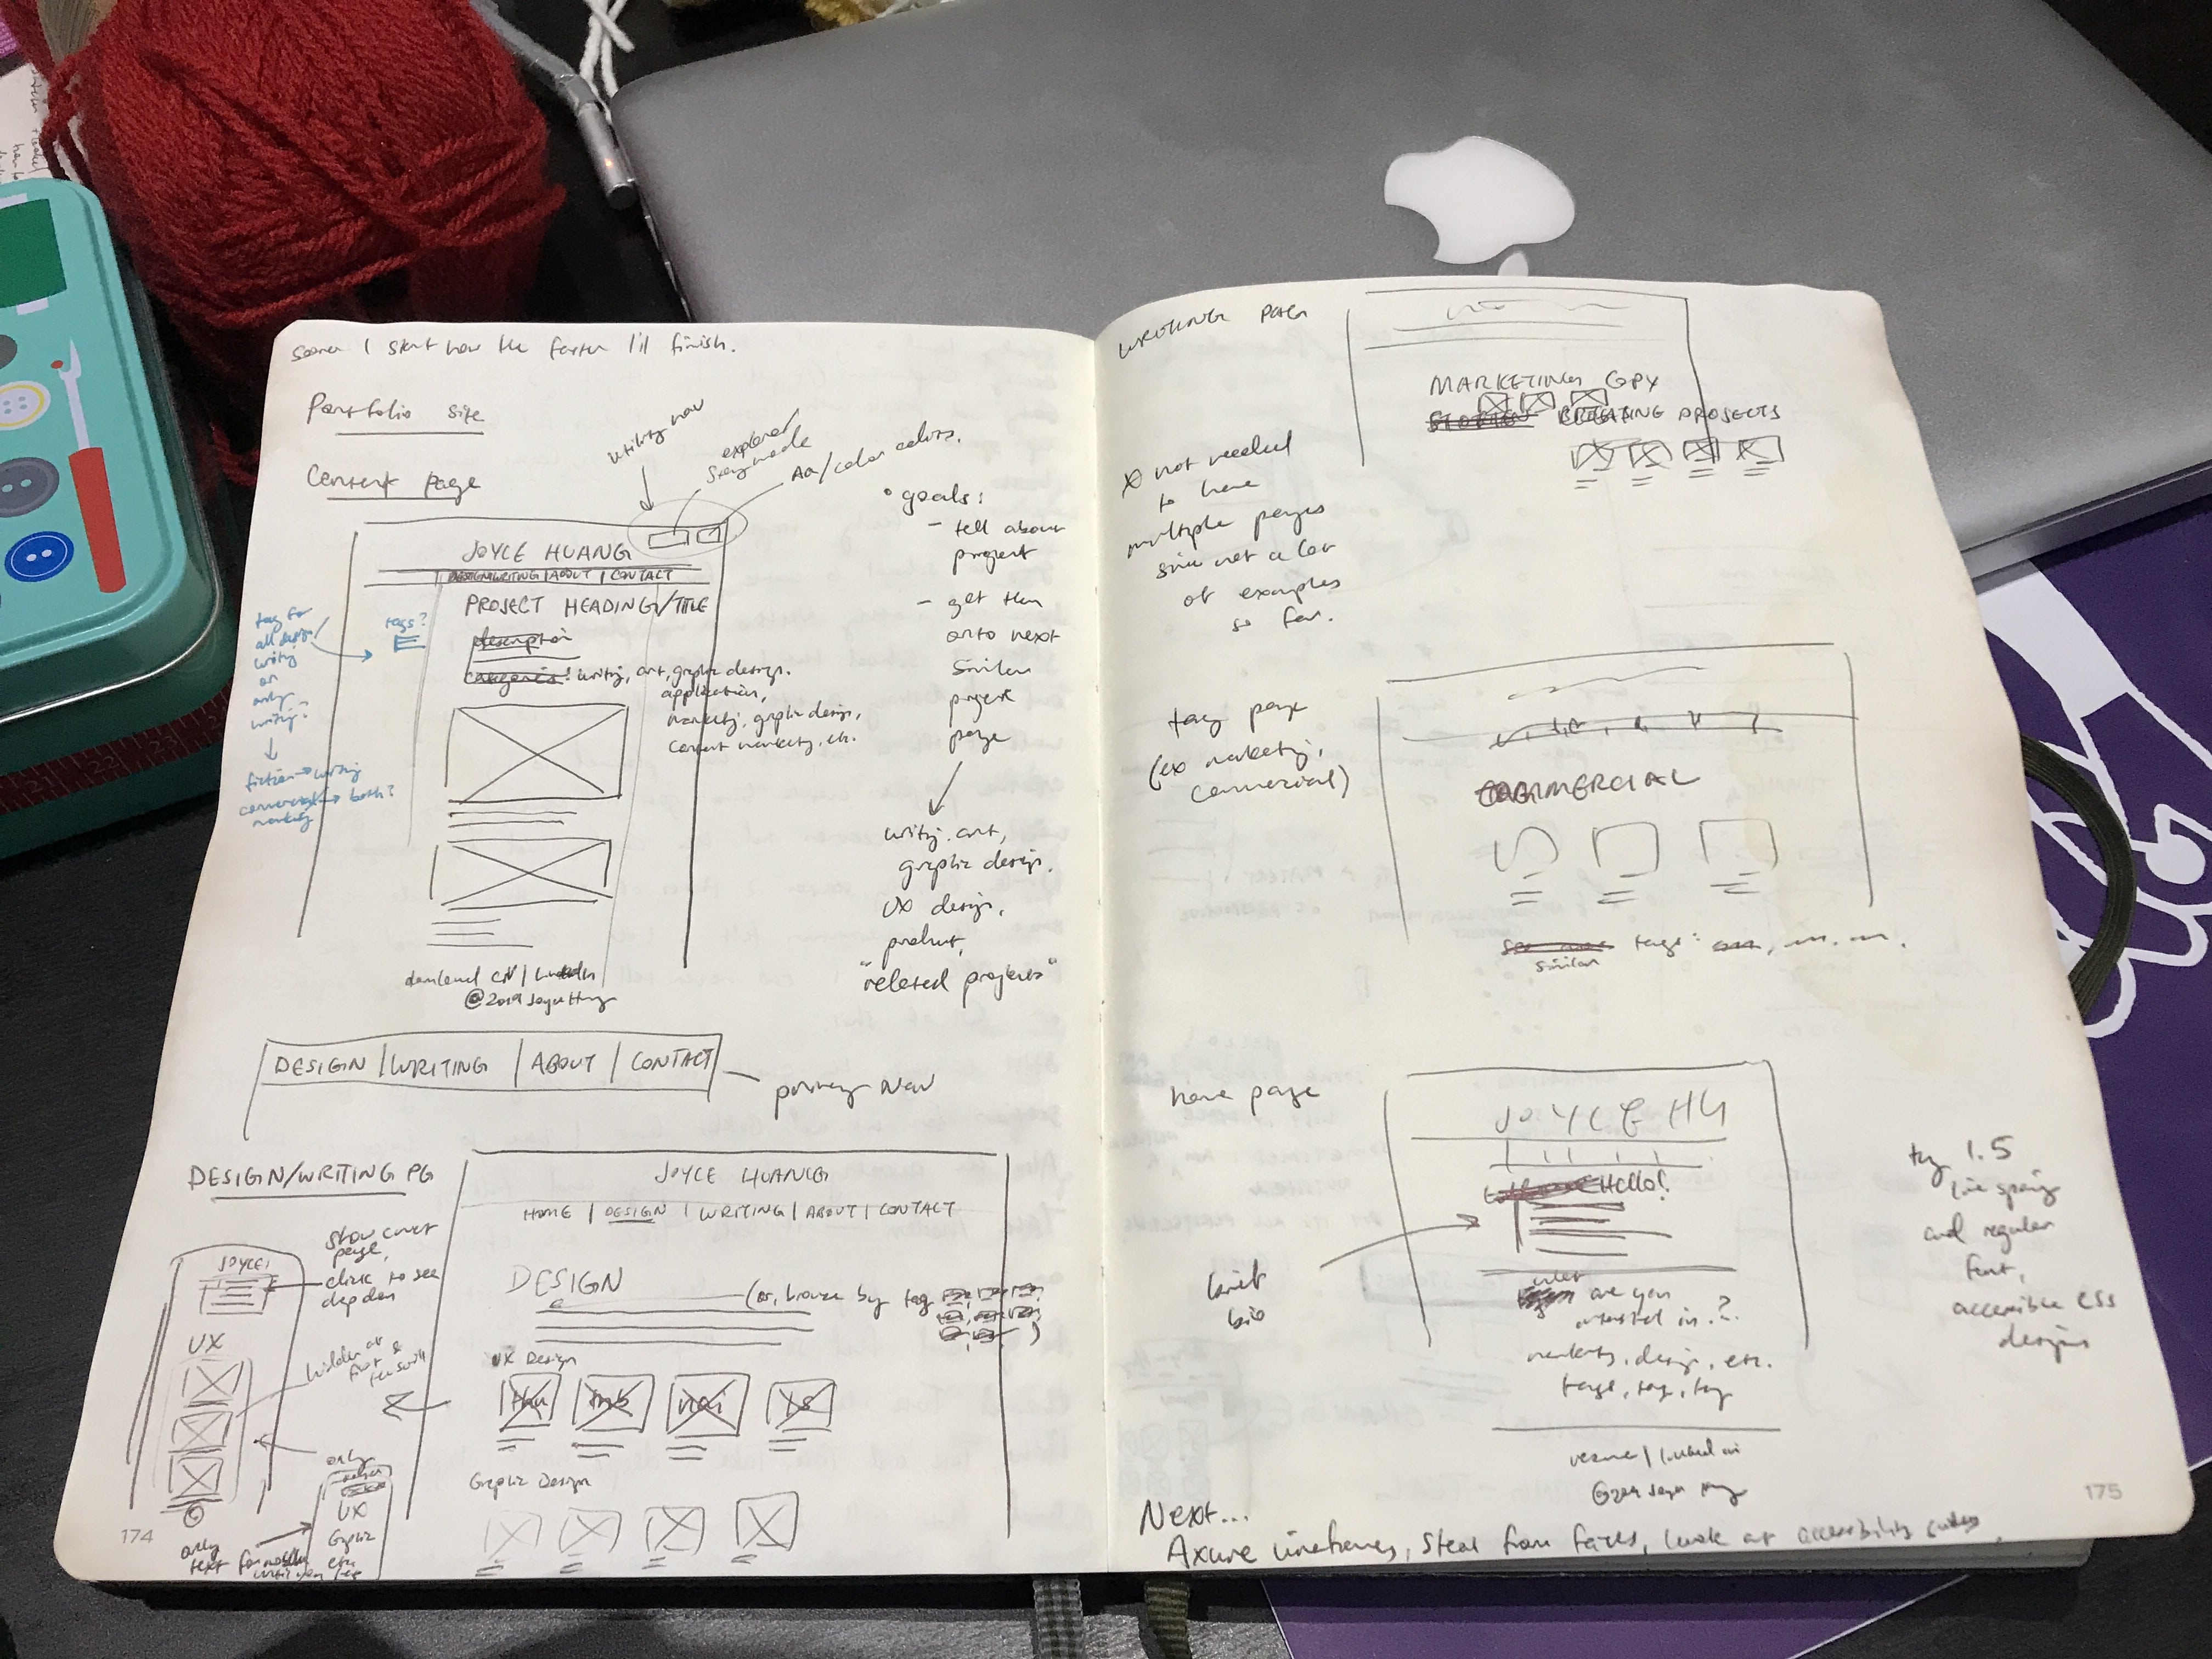 sooner I start now the faster I'll finish.
Portfolio site
Content page
utility nav
Aa/color
JOYCE HUANG
DESIGN|WRITING|ABOUT|CONTACT
PROJECT HEADING/TITLE
description
categories: writing, art, graphic design.
application,
marketing, graphic design,
content marketing, etc.
tag for
all design/
writing
or
only
writing?
tags?
fiction→writing
commercial→both?
marketing
download CV | LinkedIn
@2019 Joyce Huang
• goals:
- tell about
project
- get them
onto next
similar
project
page
writing, art,
graphic design,
UX design,
product,
"related projects"
DESIGN | WRITING | ABOUT | CONTACT
primary nav
DESIGN/WRITING PG
JOYCE
show cover
page,
click to see
UX
hidden at
first &
only
UX
Graphic
etc.
only
text for
174
JOYCE HUANG
HOME | DESIGN | WRITING | ABOUT | CONTACT
DESIGN
(or, browse by tag
)
UX Design
Graphic Design
WRITING PAGE
MARKETING CPY
PROJECTS
not needed
to have
multiple pages
since not a lot
of examples
so far.
tag page
(ex marketing,
commercial)
COMMERCIAL
similar
tags:
home page
JOYCE HG
Hello!
brief
bio
are you
interested in?
marketing, design, etc.
tags, tag, tag
resume | linked in
try 1.5
line spacing
and regular
font,
accessible CSS
designs
Next...
Axure wireframes, steal from faves, look at accessibility
175